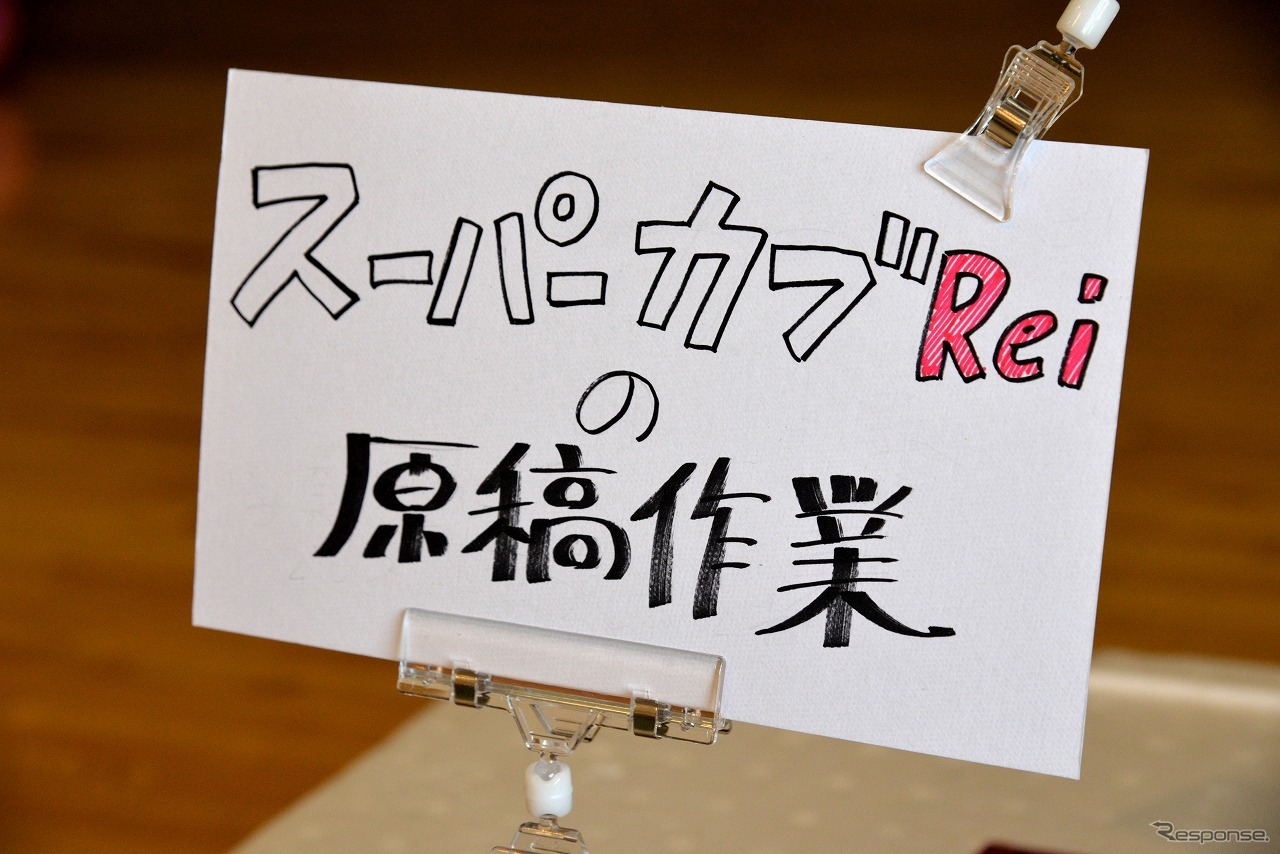 スーパーカブRei
の
原稿作業
Response.